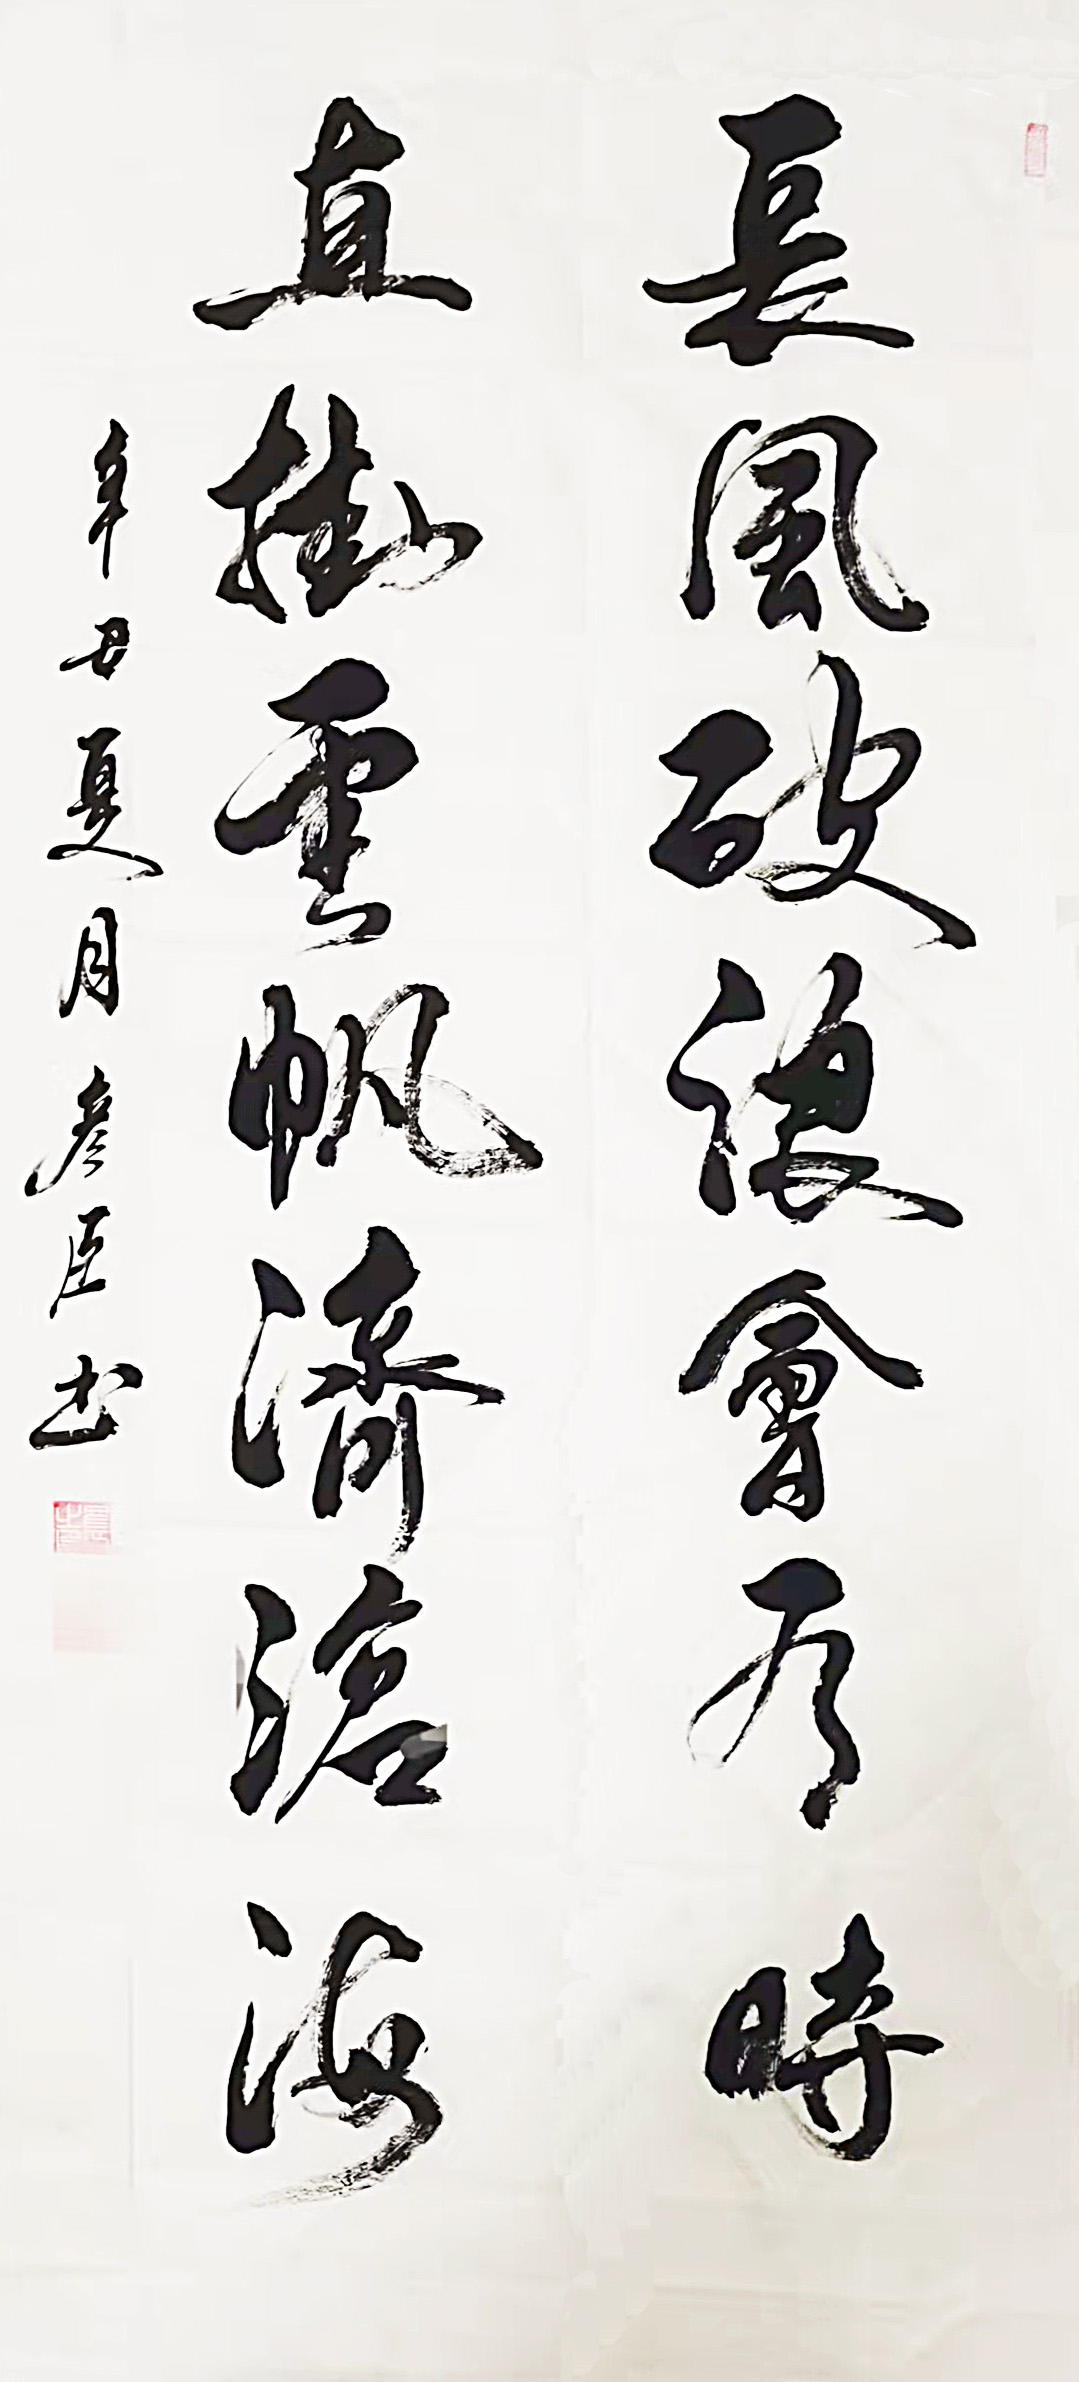 長風破浪會有時
直掛雲帆濟滄海
辛丑夏月彦臣书